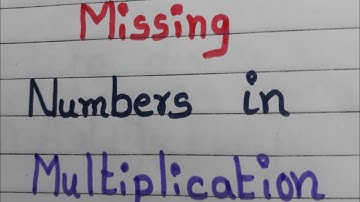 Missing
Numbers in
Multiplication